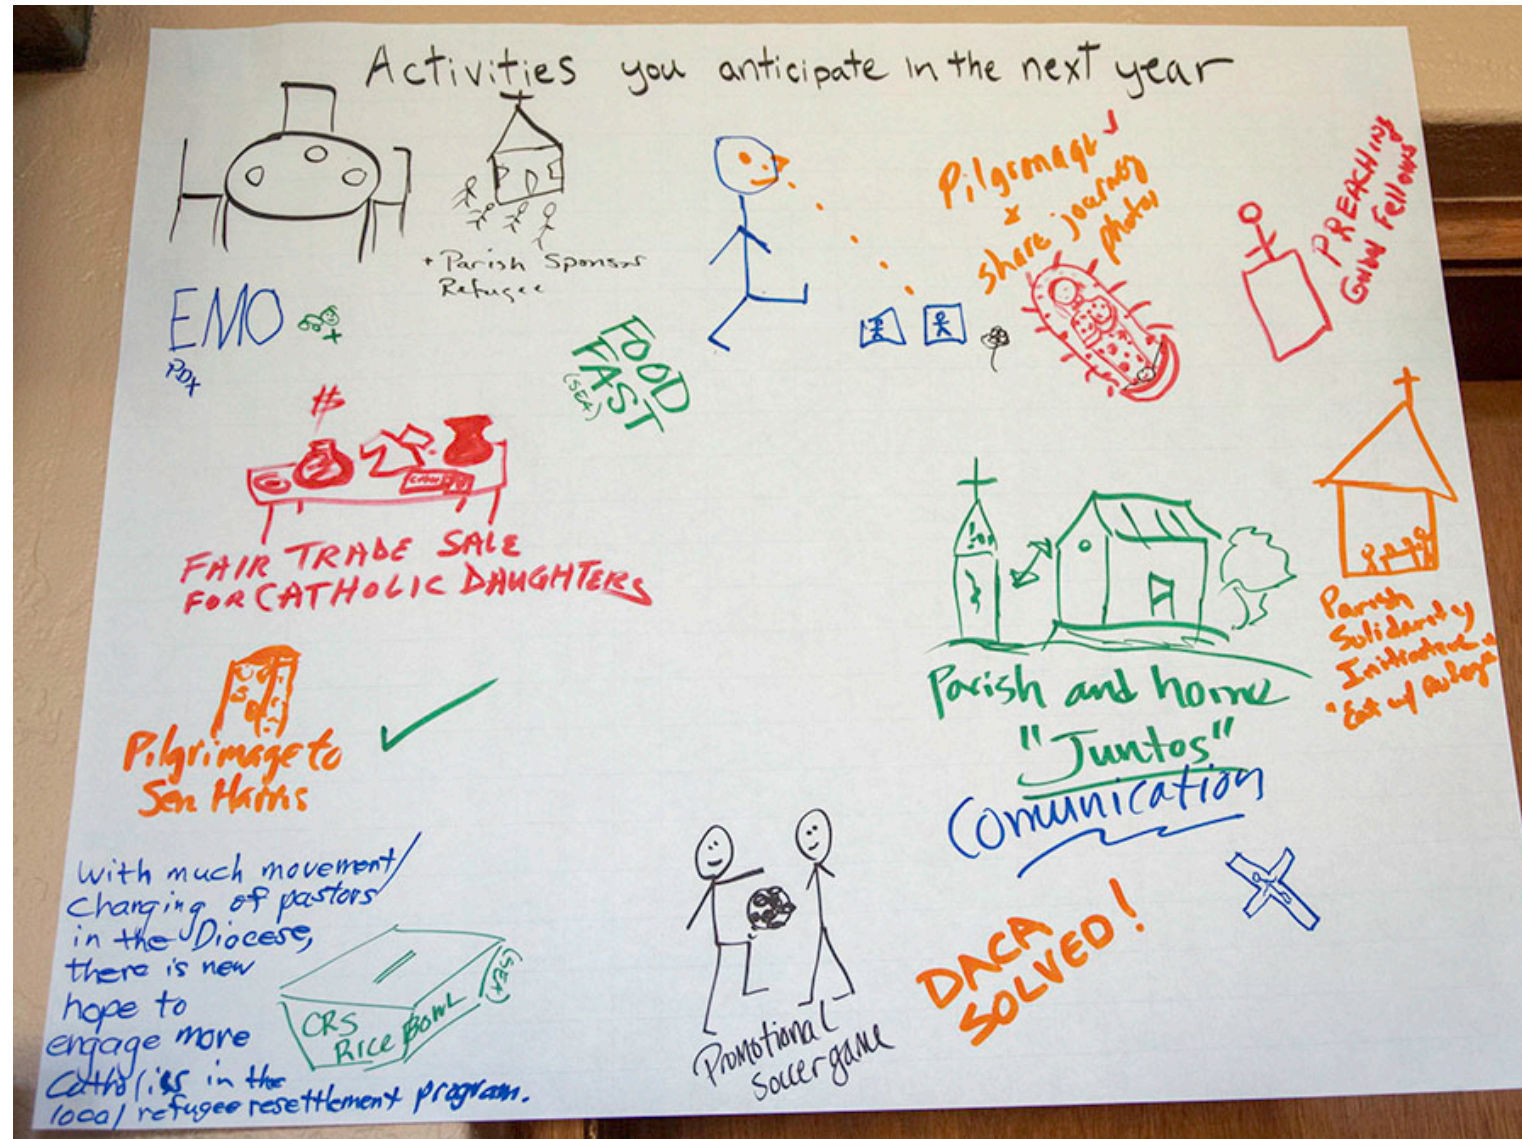 Activities you anticipate in the next year
+ Parish Sponsor
Refugee
EMO
PDX
FOOD
FAST
(SEA)
Pilgrimage
share journey
photos
PREACHING
Fellows
$
FAIR TRADE SALE
FOR CATHOLIC DAUGHTERS
Parish
Solidarity
Initiative
"Eat w/
Parish and home
"Juntos"
Comunication
Pilgrimage to
Sen Harris
With much movement/
Changing of pastors
in the Diocese,
there is new
hope to
engage more
Catholics in the
local refugee resettlement program.
CRS
RICE BOWL
(SEA)
Promotional
Soccer game
DACA
SOLVED!